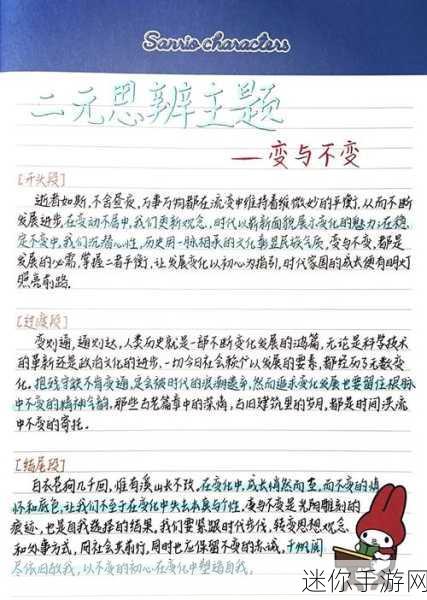 Sanrio characters
二元思辨主题
——变与不变
[开头段]
逝者如斯,不舍昼夜,万事万物都在流变中维持着维微妙的平衡,从而不断
发展进步。在变动不居中,我们更新观念,时代以崭新面貌展示变化的魅力;在稳
定不变中,我们沉潜心性,历史用一脉相承的文化彰显民族气质,变与不变,都是
发展的必需,掌握二者平衡,让发展变化以初心为指引,时代家国的成长便有明灯
照亮前路。
[过渡段]
变则通,通则达,人类历史就是一部不断变化发展的鸿篇,无论是科学技术
的革新还是政治文化的进步,一切今日社会赖以发展的要素,都经历了无数变
化,抱残守缺不肯变通,定会被时代的浪潮遗弃,然而追求变化发展也要留住根脉
中不变的精神气韵,那些古老篇章中的深情,古旧建筑里的岁月,都是时间洪流
中不变的寄托。
[结尾段]
白衣苍狗几千回,惟有溪山长不改。在变化中,成长悄然而至,而不变的
怀和底色,让我们不至于在变化中失去本真与个性。变与不变是光阴雕刻的
痕迹,也是自我选择的结果,我们要紧跟时代步伐,转变思想观念
和办事方式,同社会共前行,同时也应保留不变的赤诚,千帆阅
尽依旧故我,以不变的初心在变化中塑造自我。
迷你手游网